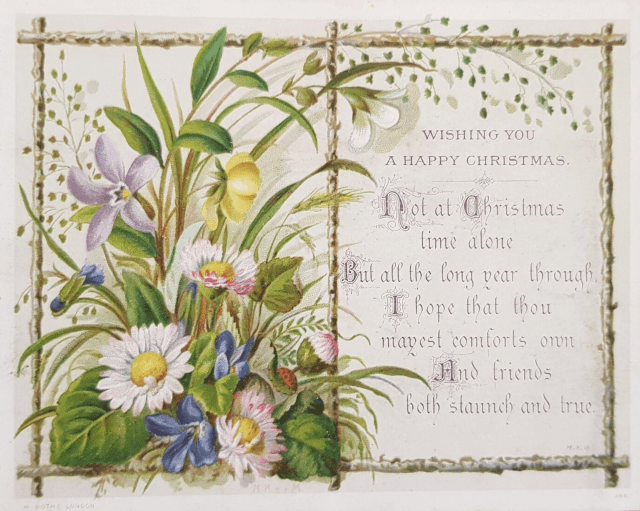 WISHING YOU
A HAPPY CHRISTMAS.
Not at Christmas
time alone
But all the long year through,
I hope that thou
mayest comforts own
And friends
both staunch and true.
LONDON